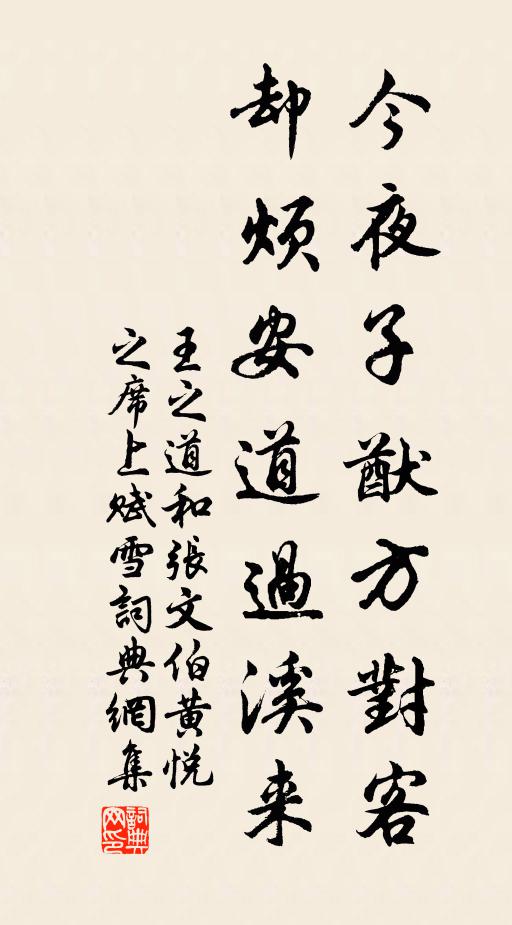 今夜子猷方對客
却煩安道過溪来
王之道和張文伯黄悦
之席上赋雪詞典網集
詞典
网印